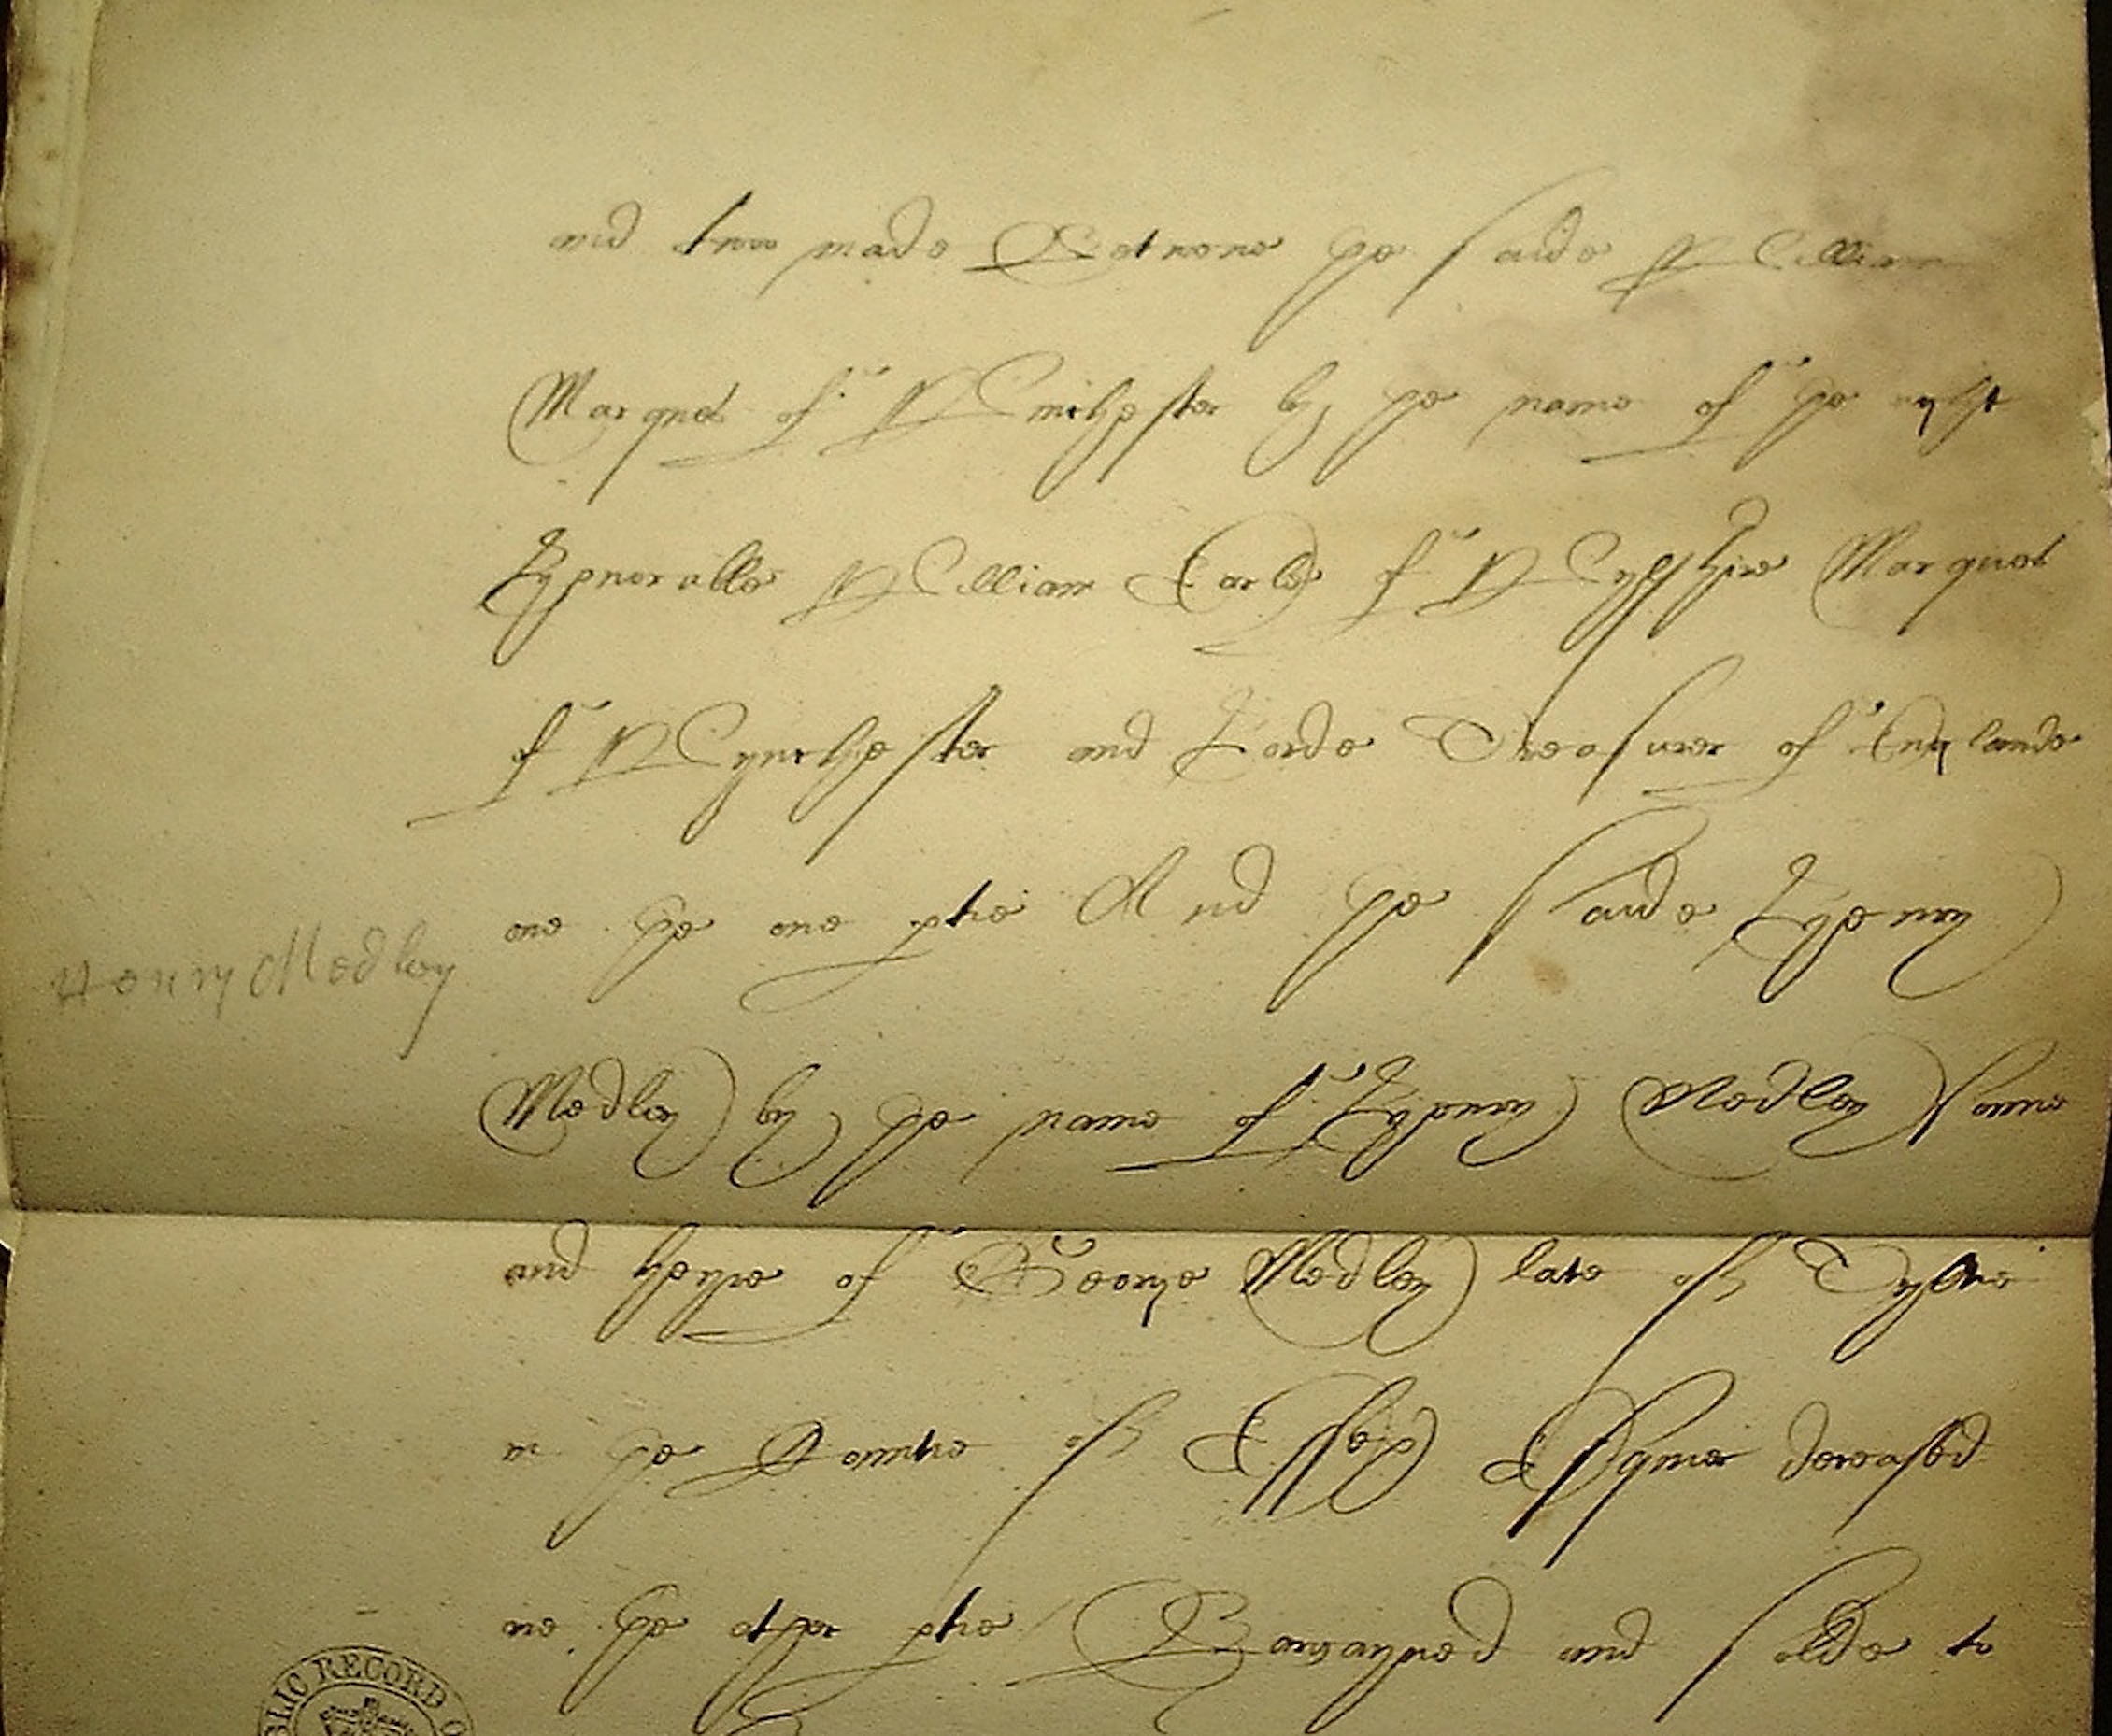 and two made Betwene the saide William
Marques of Winchester by the name of the ryght
Honorable William Earle of Wylshire Marques
of Wynchester and Lorde Treasurer of Englande
one the one ptie And the saide Henry
Henry Medley
Medley by the name of Henry Medley Sonne
and heyre of George Medley late of Tyltie
in the Countie of Essex Esquier deceased
one the other ptie Bargayned and solde to
PUBLIC RECORD O